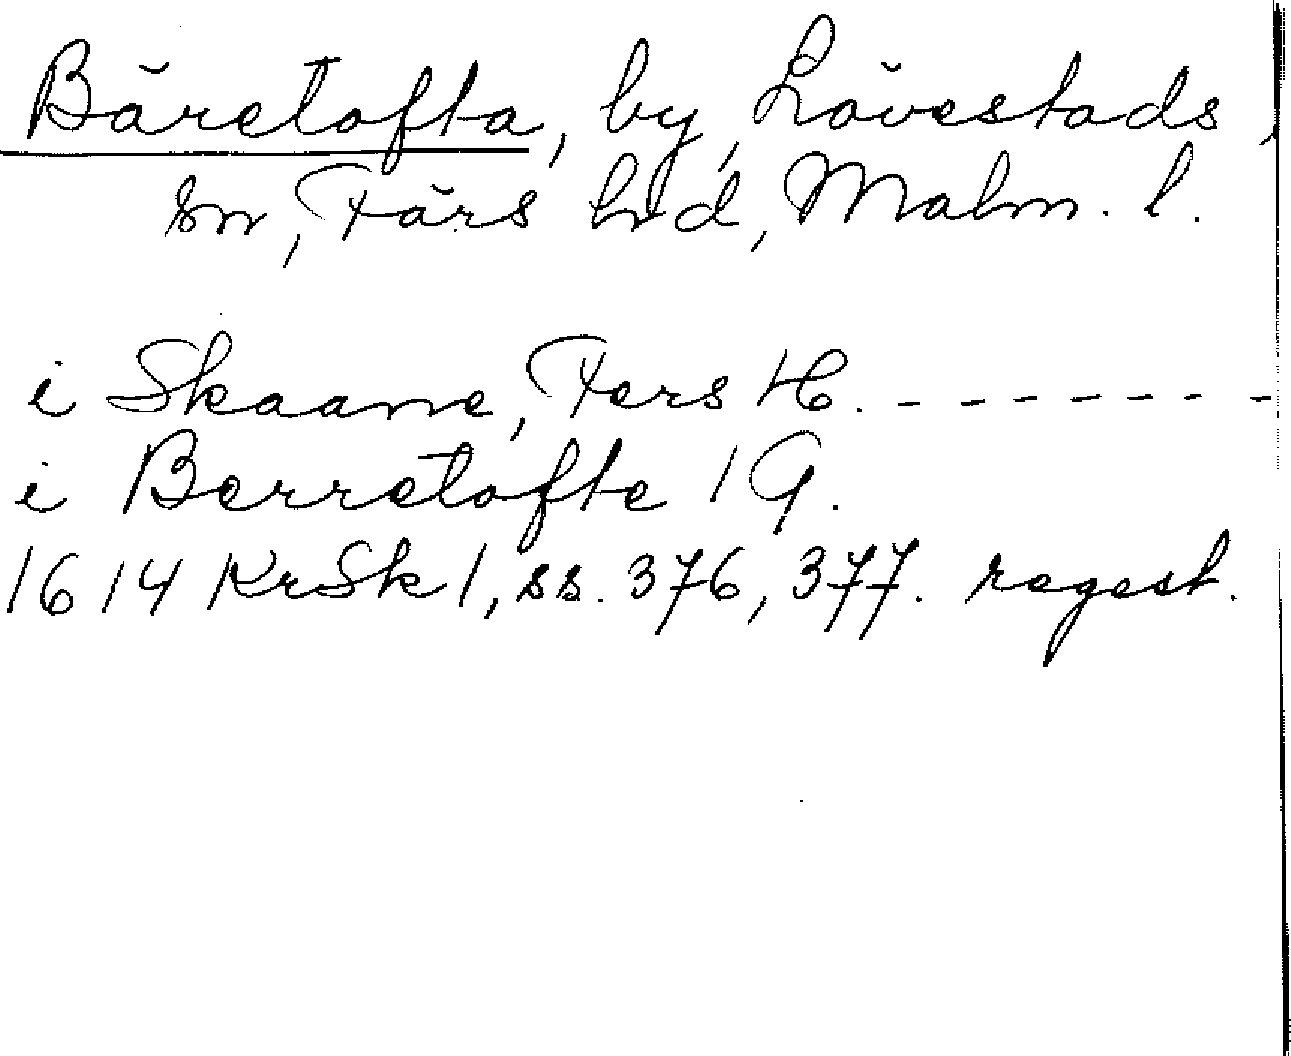 Bäretofta, by, Lövestads
sn, Färs hd, Malm. l.
i Skaane, Fers H. - - - - - - - -
i Berretofte 1 G.
1614 KrSk 1, ss. 376, 377. regest.